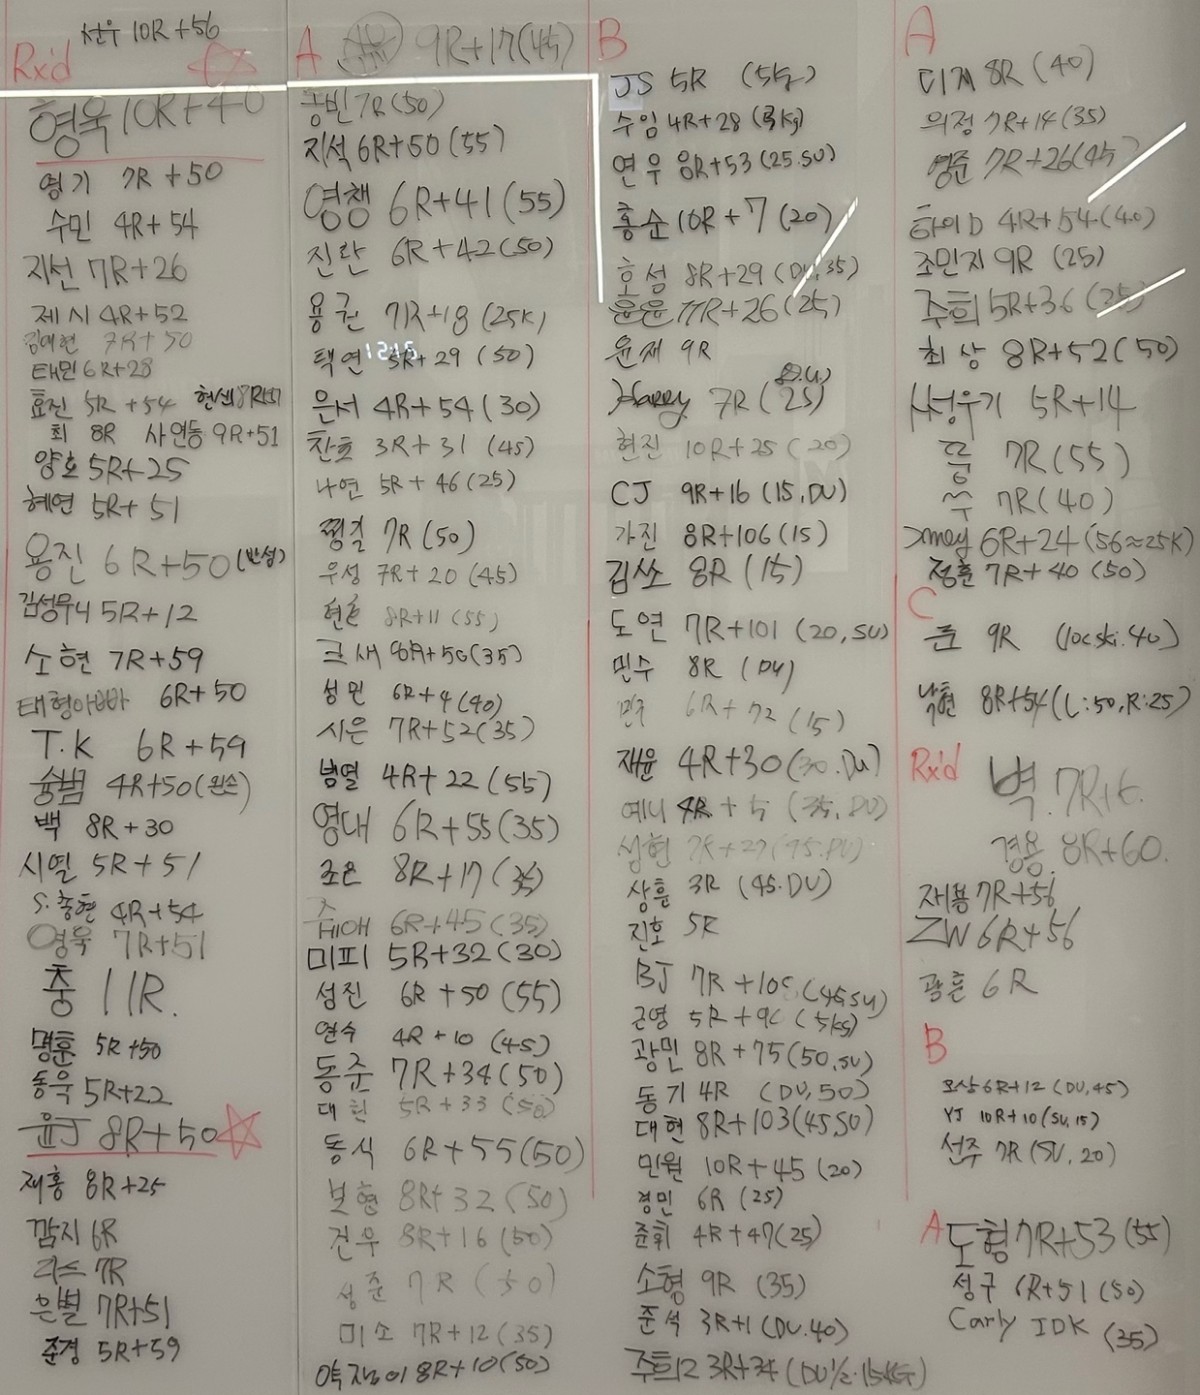 선우 10R+56
Rx'd
형욱 10R+40
영기 7R+50
수민 4R+54
지선 7R+26
제시 4R+52
김예현 7R+50
태민 6R+28
효진 5R+54
최 8R 사연동 9R+51
양호 5R+25
혜연 5R+51
용진 6R+50(반성)
김성우니 5R+12
소현 7R+59
태형아빠 6R+50
T.K 6R+59
슝범 4R+50(왼손)
백 8R+30
시열 5R+51
S.총현 4R+54
영욱 7R+51
충 11R.
명훈 5R+50
동욱 5R+22
윤J 8R+50
재홍 8R+25
깜지 6R
리스 7R
은별 7R+51
준경 5R+59
A 9R+17(45)
농빈 7R(50)
지석 6R+50(55)
영챙 6R+41(55)
진란 6R+42(50)
용권 7R+18(25K)
택연 5R+29 (50)
은서 4R+54(30)
찬호 3R+31 (45)
나연 5R+46(25)
쩡길 7R(50)
우성 7R+20(45)
현호 8R+11(55)
크새 (35)
성민 6R+4(40)
시은 7R+52(35)
병열 4R+22(55)
영대 6R+55(35)
조은 8R+17
6R+45(35)
미피 5R+32(30)
성진 6R+50(55)
연수 4R+10 (45)
동준 7R+34(50)
대현 5R+33 (50)
동식 6R+55(50)
보형 8R+32(50)
건우 8R+16(50)
성준 7R (50)
미소 7R+12(35)
8R+10(50)
B
JS 5R
수임 4R+28
연우 8R+53(25.SU)
홍순 10R+7(20)
호섬 8R+29(DU,35)
윤윤 +26(25)
윤제 9R
Harry 7R(25)
현진 10R+25(20)
CJ 9R+16(15,DU)
가진 8R+106(15)
김쏘 8R(15)
도연 7R+101(20,SU)
민수 8R (DU)
민주 6R+72 (15)
재윤 4R+30(30.DU)
예니 4R+5 (35,DU)
성현 7R+27(45.DU)
상훈 3R (45.DU)
진호 5R
BJ 7R (45,SU)
근영 5R (5kg)
광민 8R+75(50,SU)
동기 4R (DU,50)
대현 8R+103(45,SU)
민원 10R+45(20)
경민 6R (25)
준휘 4R+47(25)
소형 9R (35)
준석 3R+1(DU.40)
주희2 3R+34
A
디제 8R(40)
의정 7R+14(35)
영준 7R+26(45)
하이D 4R+54(40)
조민지 9R (25)
주희 5R+36(35)
최상 8R+52(50)
서성우기 5R+14
뚱 7R(55)
쑤 7R(40)
6R+24(56≈25K)
정훈 7R+40(50)
C
준 9R
낙현 8R+54(L:50,R:25)
Rx'd
벽 7R+6.
경용 8R+60.
재용 7R+56
ZW 6R+56
광훈 6R
B
6R+12(DU,45)
YJ 10R+10(SU,15)
선주 7R(SU,20)
A 도형 7R+53(55)
성구 6R+51(50)
Carly IDK (35)